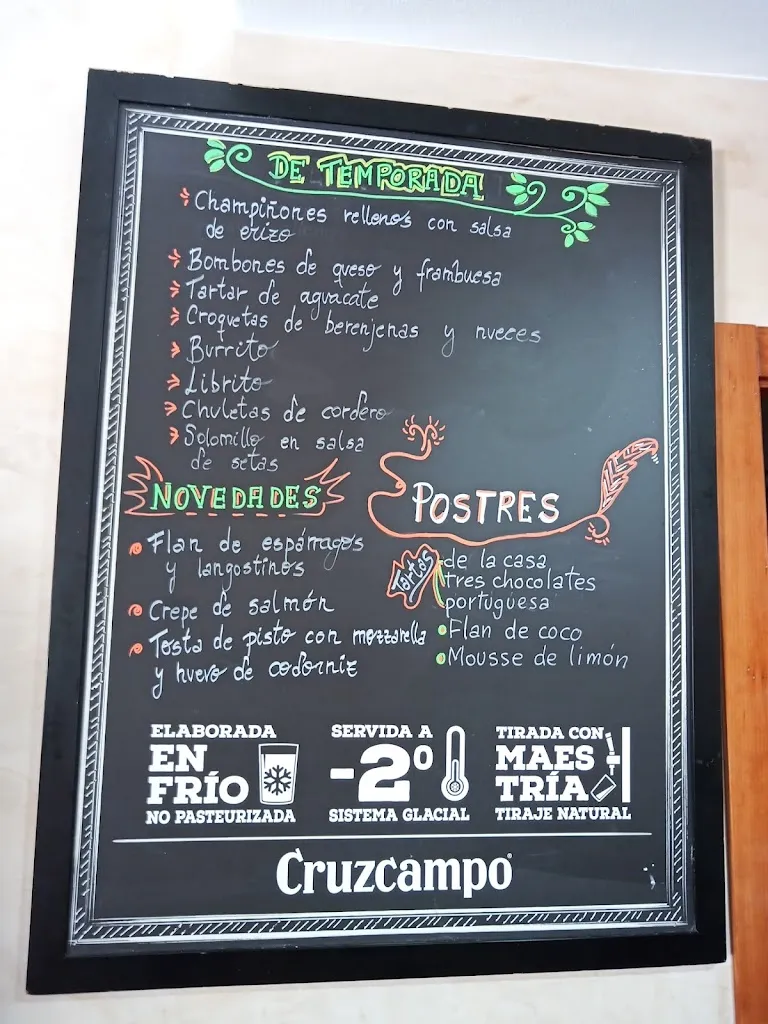 DE TEMPORADA
Champiñones rellenos con salsa
de erizo
Bombones de queso y frambuesa
Tartar de aguacate
Croquetas de berenjenas y nueces
Burrito
Librito
Chuletas de cordero
Solomillo en salsa
de setas
NOVEDADES
Flan de espárragos
y langostinos
Crepe de salmón
Tosta de pisto con mozzarella
y huevo de codorniz
POSTRES
Tartas
de la casa
tres chocolates
portuguesa
Flan de coco
Mousse de limón
ELABORADA
EN
FRÍO
NO PASTEURIZADA
SERVIDA A
-2º
SISTEMA GLACIAL
TIRADA CON
MAES
TRÍA
TIRAJE NATURAL
Cruzcampo